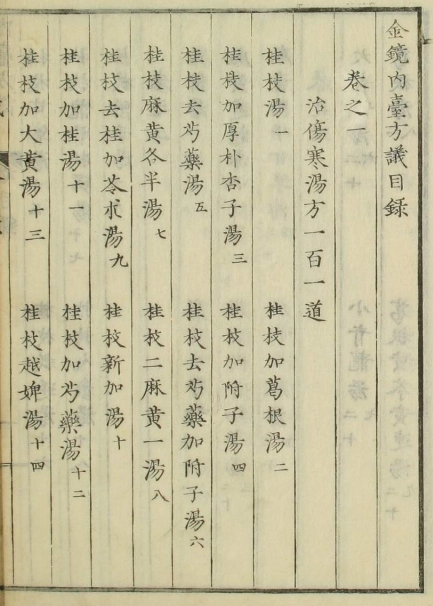 金鏡內臺方議目錄
卷之一
治傷寒湯方一百一道
桂枝湯一　桂枝加葛根湯二
桂枝加厚朴杏子湯三　桂枝加附子湯四
桂枝去芍藥湯五　桂枝去芍藥加附子湯六
桂枝麻黃各半湯七　桂枝二麻黃一湯八
桂枝去桂加苓朮湯九　桂枝新加湯十
桂枝加桂湯十一　桂枝加芍藥湯十二
桂枝加大黃湯十三　桂枝越婢湯十四